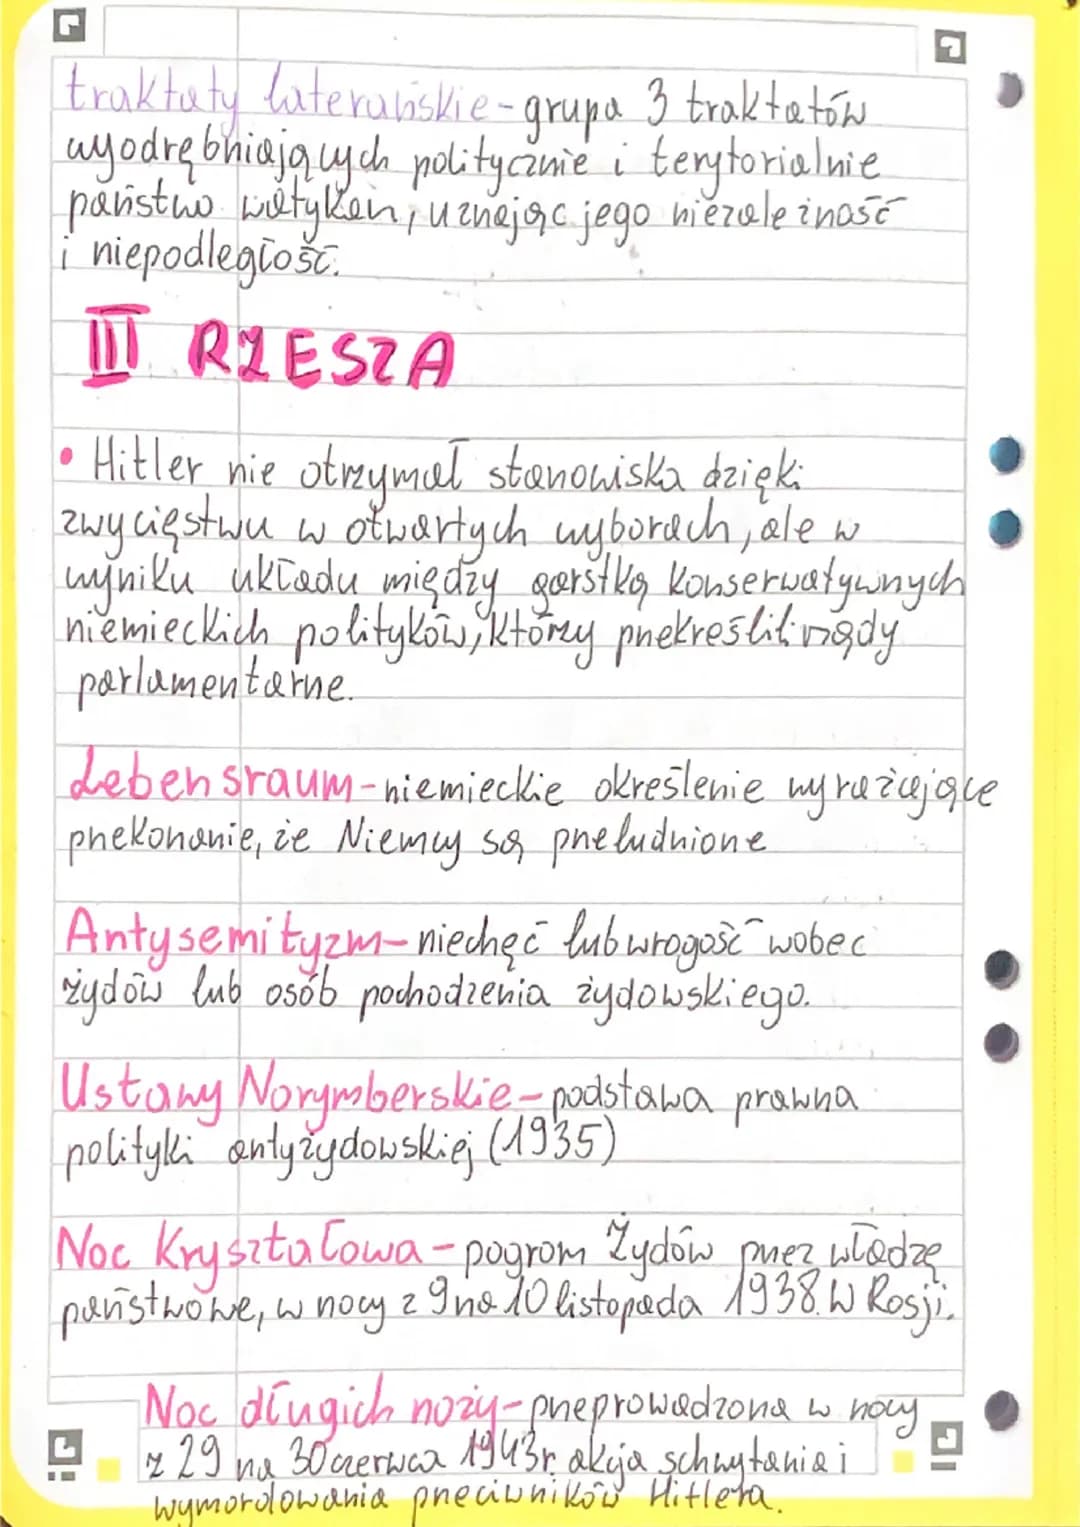 traktaty laterańskie - grupa 3 traktatów
wyodrębniających politycznie i terytorialnie
państwo watykan, uznając jego niezależność
i niepodległość.
III RZESZA
• Hitler nie otrzymał stanowiska dzięki
zwycięstwu w otwartych wyborach, ale w
wyniku układu między garstką konserwatywnych
niemieckich polityków, którzy przekreślili rządy
parlamentarne.
Lebensraum - niemieckie określenie wyrażające
przekonanie, że Niemcy są przeludnione
Antysemityzm - niechęć lub wrogość wobec
żydów lub osób pochodzenia żydowskiego.
Ustawy Norymberskie - podstawa prawna
polityki antyżydowskiej (1935)
Noc Kryształowa - pogrom Żydów przez władzę
państwowe, w nocy z 9 na 10 listopada 1938. W Rosji.
Noc długich noży - przeprowadzona w nocy
z 29 na 30 czerwca 1943r. akcja schwytania i
wymordowania przeciwników Hitlera.